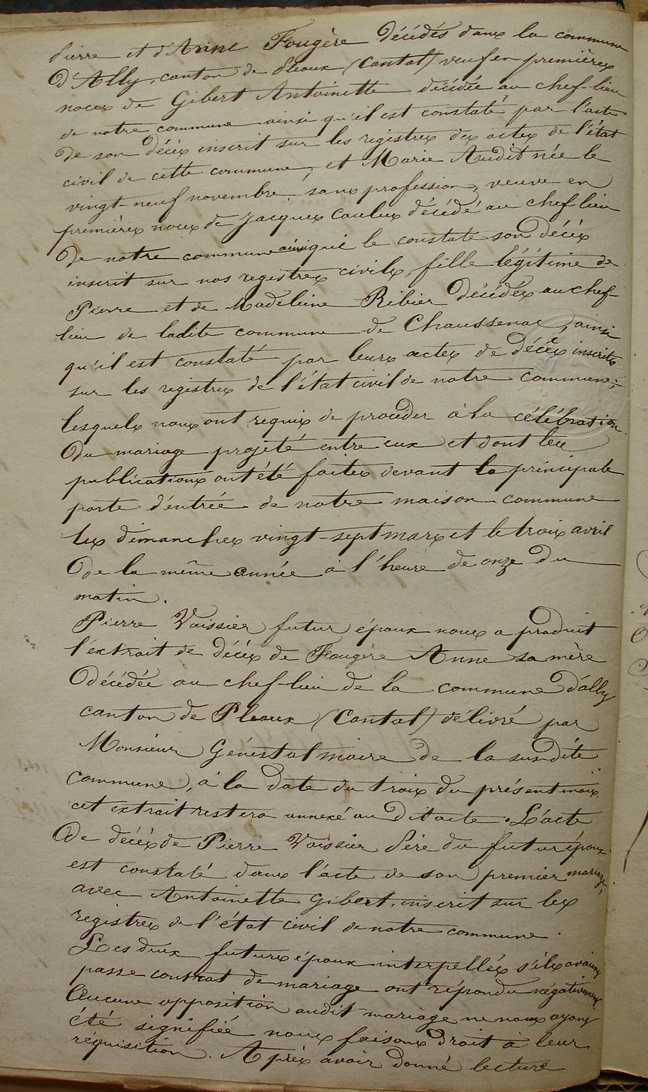 Pierre et d'Anne Fougère Décédés dans la commune
D'Ally, canton de Pleaux (Cantal) veuf en premières
noces de Gibert Antoinette décédée au chef-lieu
de notre commune ainsi qu'il est constaté par l'acte
de son décès inscrit sur les registres des actes de l'état
civil de cette commune, et Marie Audit née le
vingt neuf novembre, sans profession, veuve en
premières noces de Jacques Caulus décédé au chef lieu
de notre commune ainsi que le constate son décès
inscrit sur nos registres civils, fille légitime de
Pierre et de Madeleine Ribier Décédés au chef-
lieu de ladite commune de Chaussenac, ainsi
qu'il est constaté par leurs actes de décès inscrits
sur les registres de l'état civil de notre commune;
lesquels nous ont requis de procéder à la célébration
Du mariage projeté entre eux et dont les
publications ont été faites devant la principale
porte d'entrée de notre maison commune
les dimanches vingt-sept mars et le trois avril
De la même année à l'heure de onze du
matin.
Pierre Vaissier futur époux nous a produit
l'extrait de décès de Fougère Anne sa mère
Décédée au chef-lieu de la commune d'ally
canton de Pleaux (Cantal) délivré par
Monsieur Genestal maire de la susdite
commune, à la date du trois du présent mois
cet extrait restera annexé au dit acte. L'acte
De décès de Pierre Vaissier Père du futur époux
est constaté dans l'acte de son premier mariage,
avec Antoinette Gibert, inscrit sur les
registres de l'état civil de notre commune.
Les deux futurs époux interpellés s'ils avaient
passé contrat de mariage ont répondu négativement
Aucune opposition audit mariage ne nous ayant
été signifiée nous faisons droit à leur
réquisition. Après avoir donné lecture